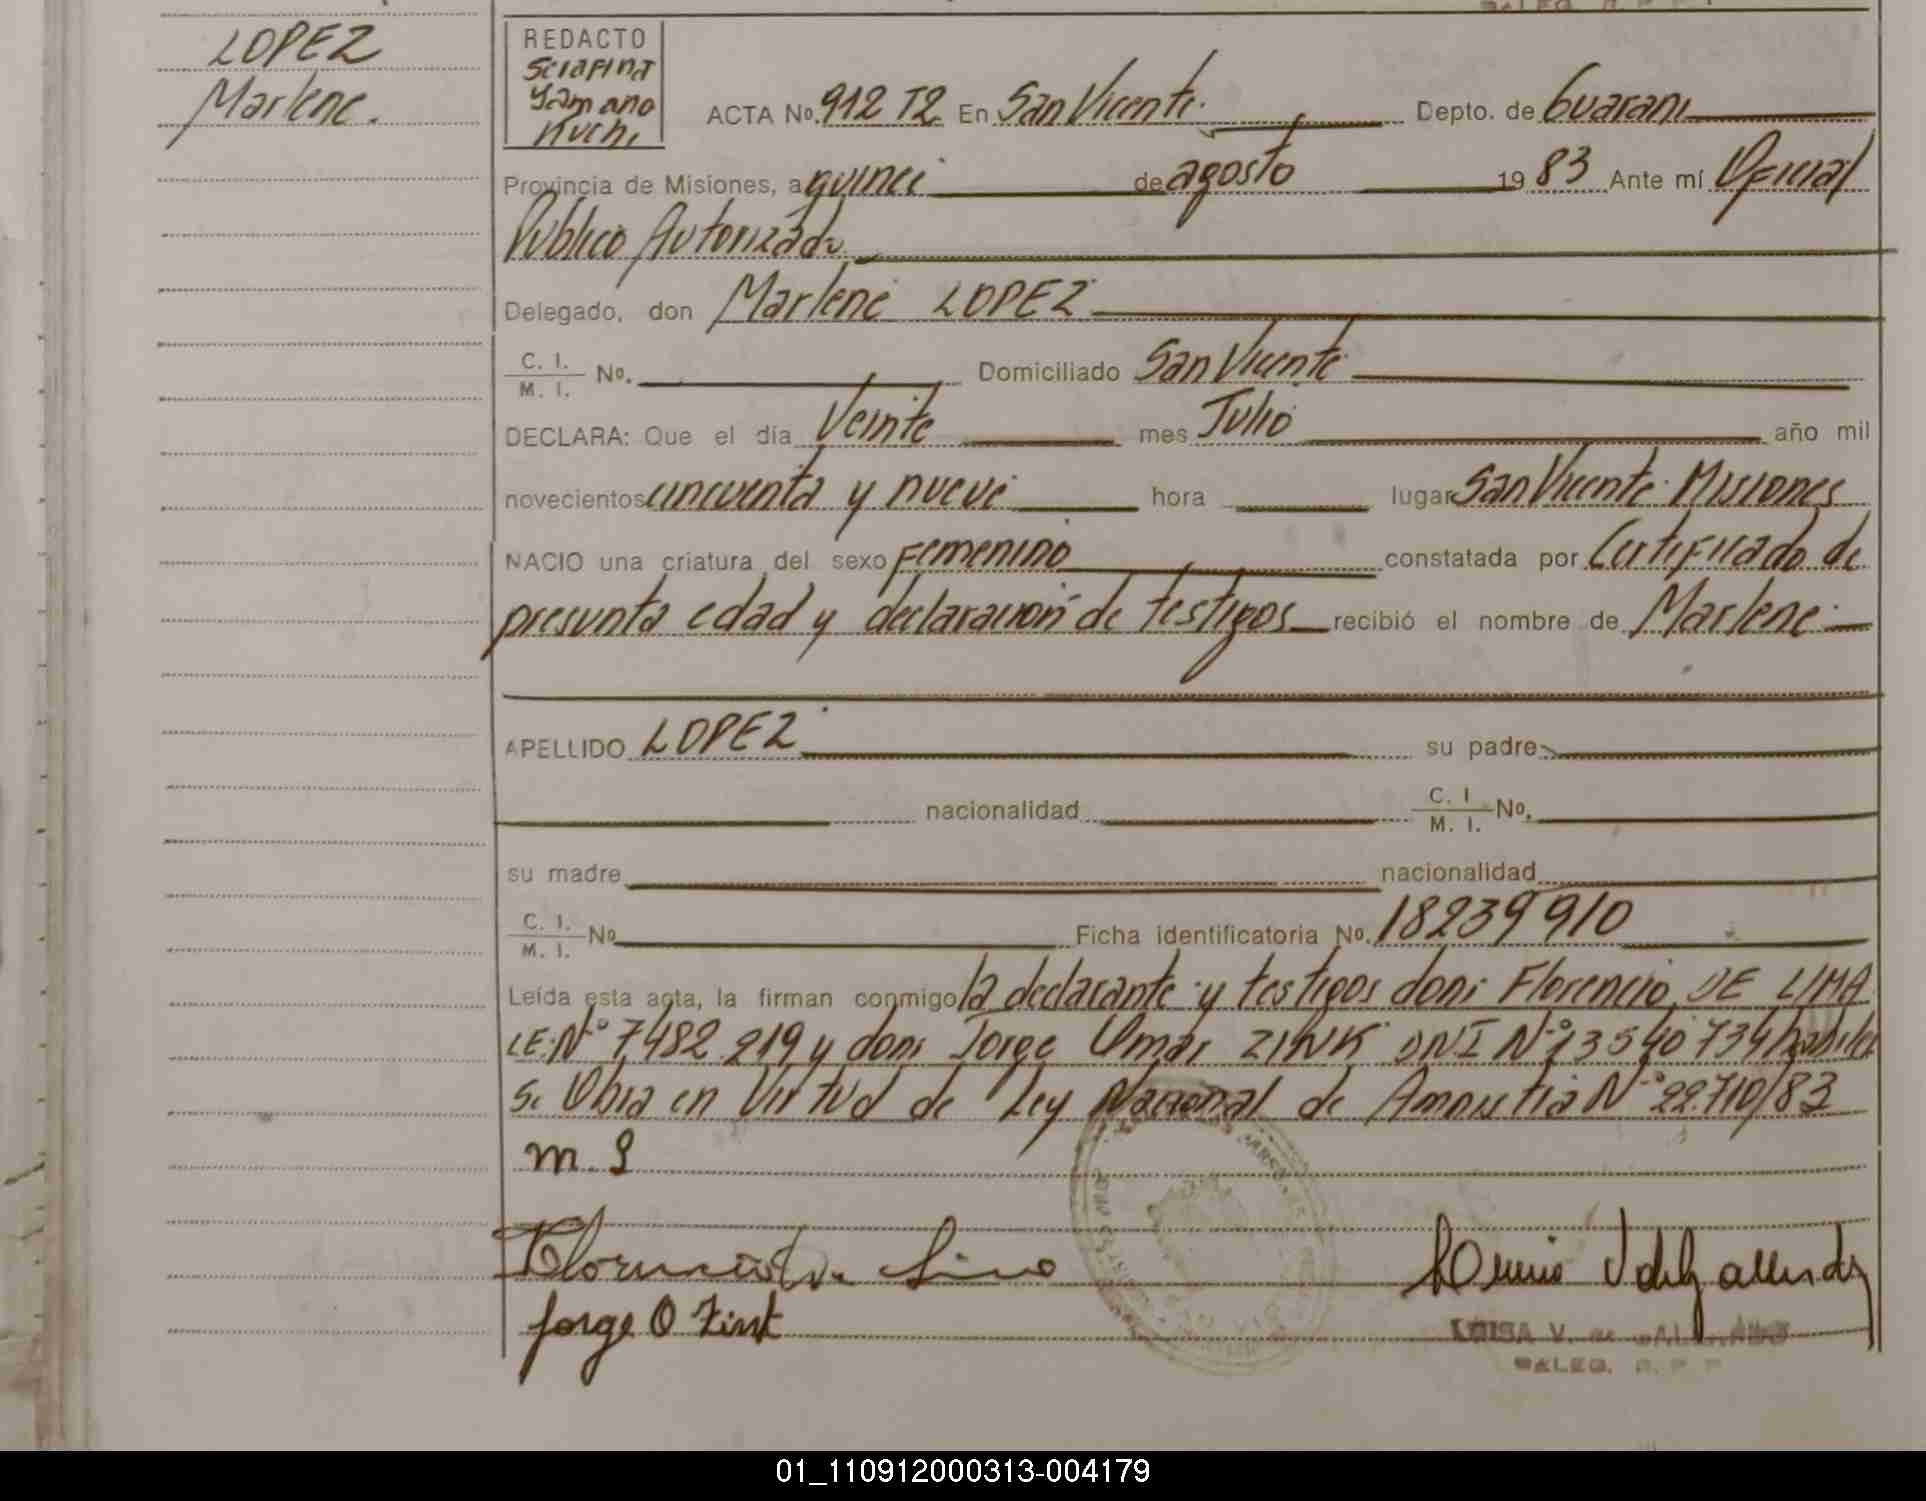 LOPEZ
Marlene.
REDACTO
Serafina
Yamano
Kuchi
ACTA No. 912 T2 En San Vicente. Depto. de Guarani
Provincia de Misiones, a quince de agosto 19 83 Ante mí Oficial
Publico Autorizado
Delegado, don Marlene LOPEZ
C. I. / M. I. No. Domiciliado San Vicente
DECLARA: Que el día Veinte mes Julio año mil
novecientos cincuenta y nueve hora lugar San Vicente Misiones
NACIO una criatura del sexo Femenino constatada por Certificado de
presunta edad y declaración de testigos recibió el nombre de Marlene
APELLIDO LOPEZ su padre
nacionalidad C. I. / M. I. No.
su madre nacionalidad
C. I. / M. I. No Ficha identificatoria No. 18239910
Leída esta acta, la firman conmigo la declarante y testigos don: Florencio DE LIMA
LE: Nº 7.482.219 y don: Jorge Omar ZINK DNI Nº 13540734 habiles
Se Obra en Virtud de Ley Nacional de Amnistia Nº 22.710/83
m. L
Jorge O Zink
DELEG. R. P. P
01_110912000313-004179